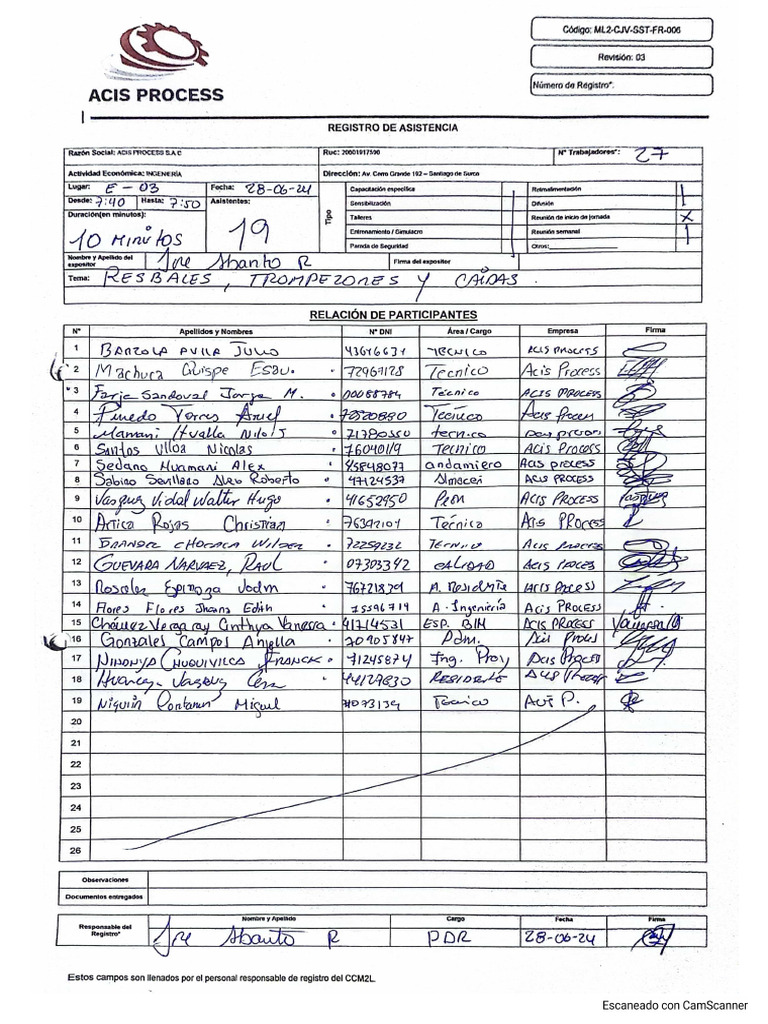 Código: ML2-CJV-SST-FR-006
Revisión: 03
Número de Registro*:
ACIS PROCESS
REGISTRO DE ASISTENCIA
Razón Social: ACIS PROCESS S.A.C Ruc: 20601917590 N° Trabajadores*: 27
Actividad Económica: INGENIERÍA Dirección: Av. Cerro Grande 192 – Santiago de Surco
Lugar: E-03 Fecha: 28-06-24
Desde: 7:40 Hasta: 7:50 Asistentes: 19
Duración(en minutos): 10 Minutos
Tipo
Capacitación específica Retroalimentación
Sensibilización Difusión
Talleres Reunión de inicio de jornada X
Entrenamiento / Simulacro Reunión semanal
Parada de Seguridad Otros:
Nombre y Apellido del expositor Jre Abanto R Firma del expositor
Tema: RESBALES, TROMPEZONES Y CAÍDAS.
RELACIÓN DE PARTICIPANTES
N° Apellidos y Nombres N° DNI Área / Cargo Empresa Firma
1 BARZOLA AVILA JULIO TECNICO ACIS PROCESS
2 Machuca Quispe Esau. 72967128 Tecnico Acis Process
3 Farje Sandoval Jorge M. 00088784 Técnico ACIS PROCESS
4 Pinedo Torres Técnico Acis Process
5 Mamani Hualla 71780550 tecnico
6 Santos Ulloa Nicolas 76040119 Tecnico Acis Process
7 Sedano Huamani Alex 45848077 andamiero Acis process
8 Sabino Sevillano Roberto 47124537 Almacen ACIS PROCESS
9 Vasquez Vidal Walter Hugo 41652950 Peon ACIS PROCESS
10 Artica Rojas Christian Técnico Acis PROCESS
11 72259232 Técnico Acis Process
12 GUEVARA NARVAEZ, RAUL 07303342 CALIDAD ACIS PROCESS
13 Rosales Espinoza 76721839 A. Residente ACIS PROCESS
14 Flores Flores Jhans Edith 75596719 A. Ingeniería ACIS PROCESS
15 Chávez Vergaray Cinthya Vanessa 41714531 ESP. BIM ACIS PROCESS
16 Gonzales Campos Angella 70905847 Adm. Acis Process
17 71245874 Ing. Proy Acis Proces
18 44129830 RESIDENTE
19 Miguel Técnico
20
21
22
23
24
25
26
Observaciones
Documentos entregados
Responsable del Registro* Nombre y Apellido Cargo Fecha Firma
Jre Abanto R PDR 28-06-24
Estos campos son llenados por el personal responsable de registro del CCM2L.
Escaneado con CamScanner